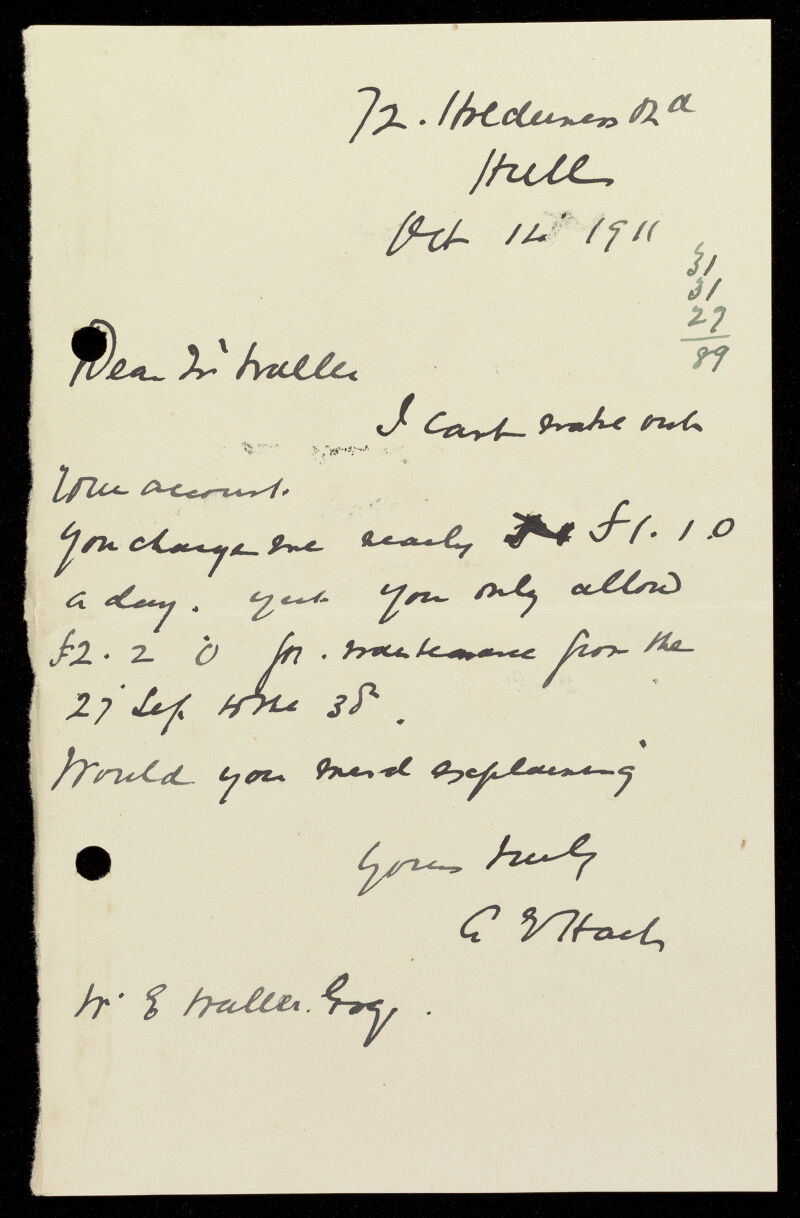 72. Holderness Rd
Hull
Oct 14 1911
31
31
27
89
Dear Mr Waller
I cant make out
your account.
You charge me nearly £1.1.0
a day. yet you only allow
£2.2 0 for. maintenance from the
27 Sep. to the 30th.
Would you mind explaining
Yours truly
W. E Waller. Esq.